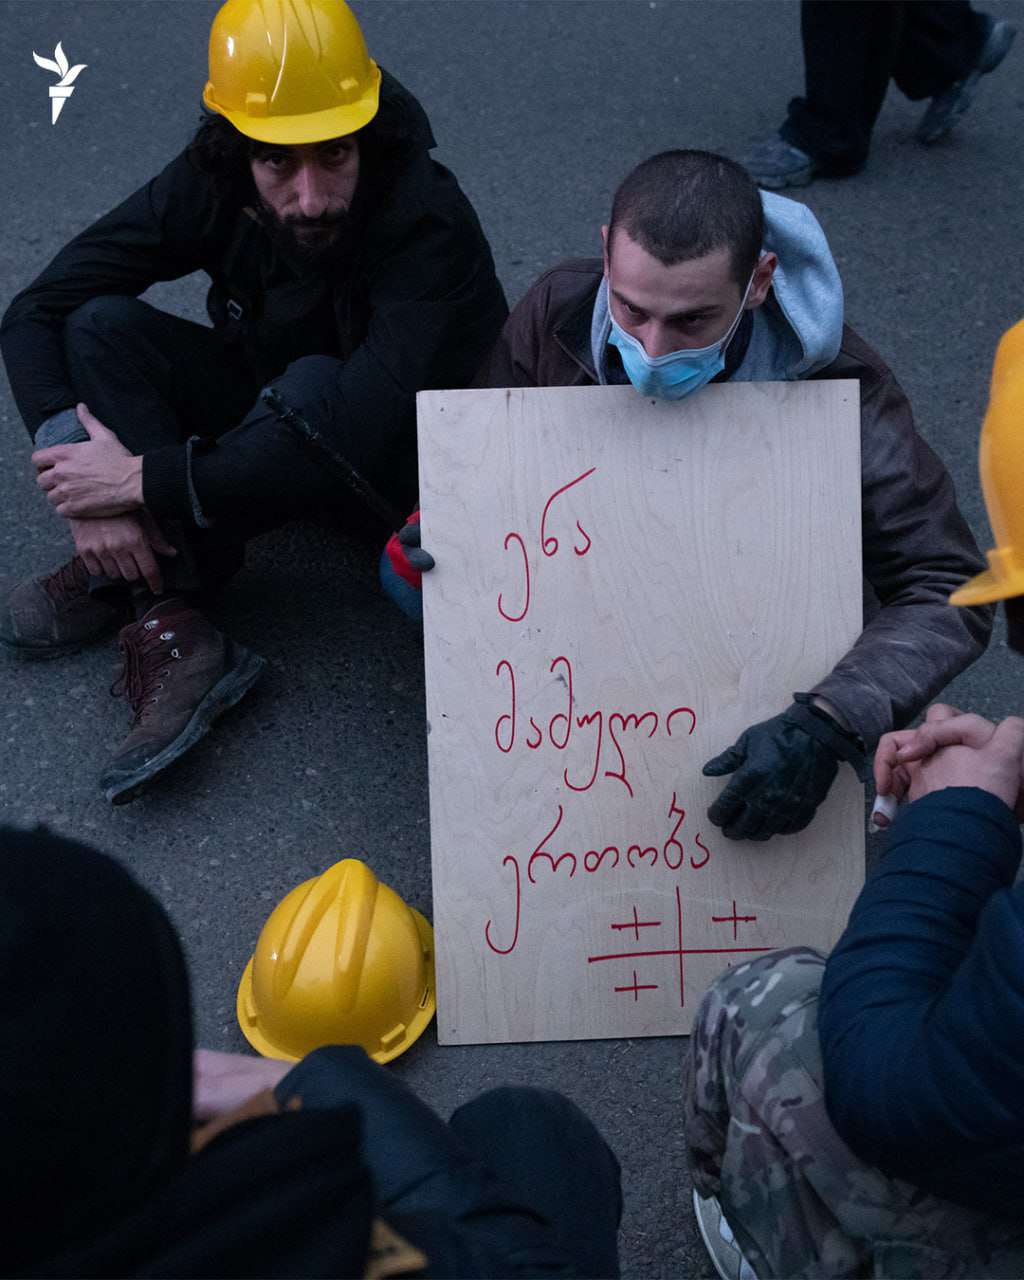 ენა
მამული
ერთობა